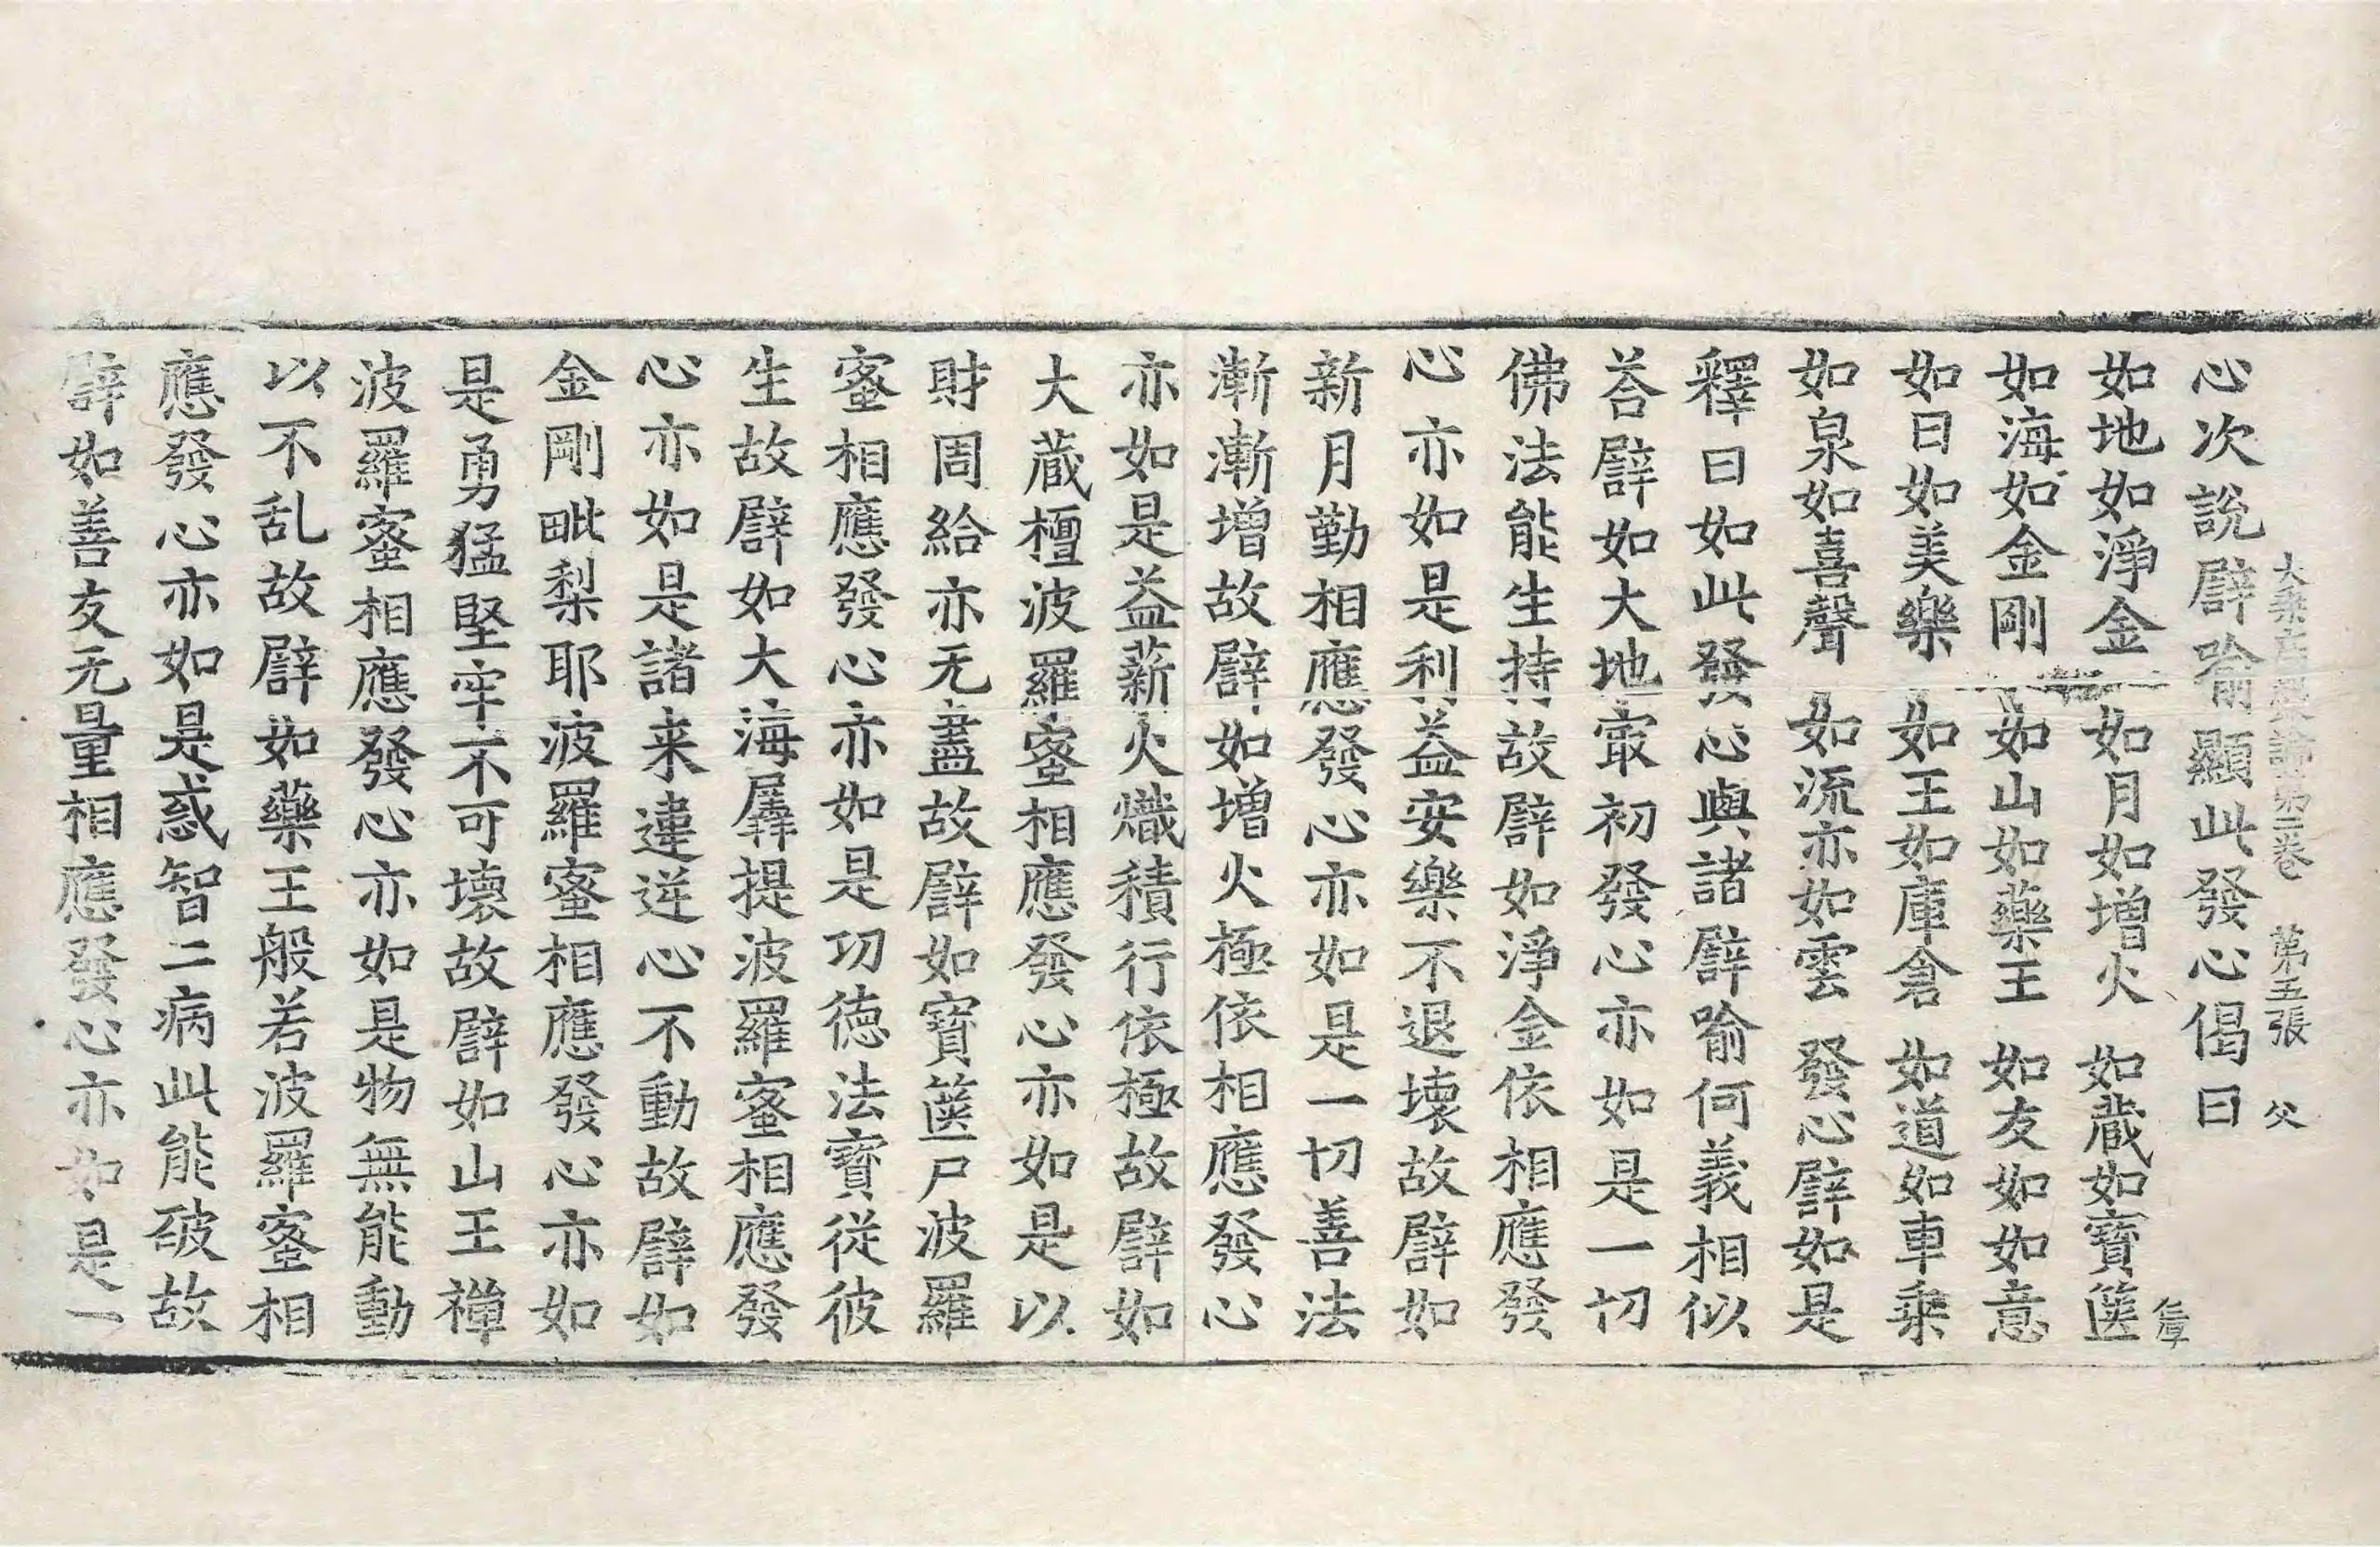 心次說譬喻顯此發心偈曰
大乘庄嚴論第二卷 第五張 父
如地如淨金 如月如增火 如蔵如寶篋
如海如金剛 如山如藥王 如友如如意
如日如美樂 如王如庫倉 如道如車乘
如泉如喜聲 如流亦如雲 發心譬如是
釋曰如此發心與諸譬喻何義相似
荅譬如大地㝡初發心亦如是一切
佛法能生持故譬如淨金依相應發
心亦如是利益安樂不退壞故譬如
新月勤相應發心亦如是一切善法
漸漸增故譬如增火極依相應發心
亦如是益薪火熾積行依極故譬如
大蔵檀波羅蜜相應發心亦如是以
財周給亦无盡故譬如寶篋尸波羅
蜜相應發心亦如是功德法寶從彼
生故譬如大海羼提波羅蜜相應發
心亦如是諸来違逆心不動故譬如
金剛毗梨耶波羅蜜相應發心亦如
是勇猛堅牢不可壞故譬如山王禪
波羅蜜相應發心亦如是物無能動
以不乱故譬如藥王般若波羅蜜相
應發心亦如是惑智二病此能破故
譬如善友无量相應發心亦如是一